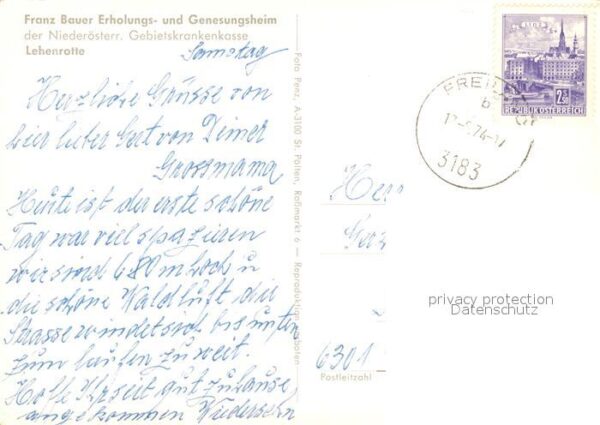 Franz Bauer Erholungs- und Genesungsheim
der Niederösterr. Gebietskrankenkasse
Lehenrotte
Samstag
Herzliche Grüsse von
hier lieber Gert von Deiner
Grossmama
Heute ist der erste schöne
Tag war viel spazieren
wir sind 680 m hoch u
die schöne Waldluft die
Strasse windet sich bis unten
zum laufen zu weit.
Hoffe Ihr seit gut zuhause
angekommen Wiedersehn
Foto Penz, A-3100 St. Pölten, Roßmarkt 6 — Reproduktion
LINZ
2.50
REPUBLIK ÖSTERREICH
3183
Her
6301
Postleitzahl
privacy protection
Datenschutz